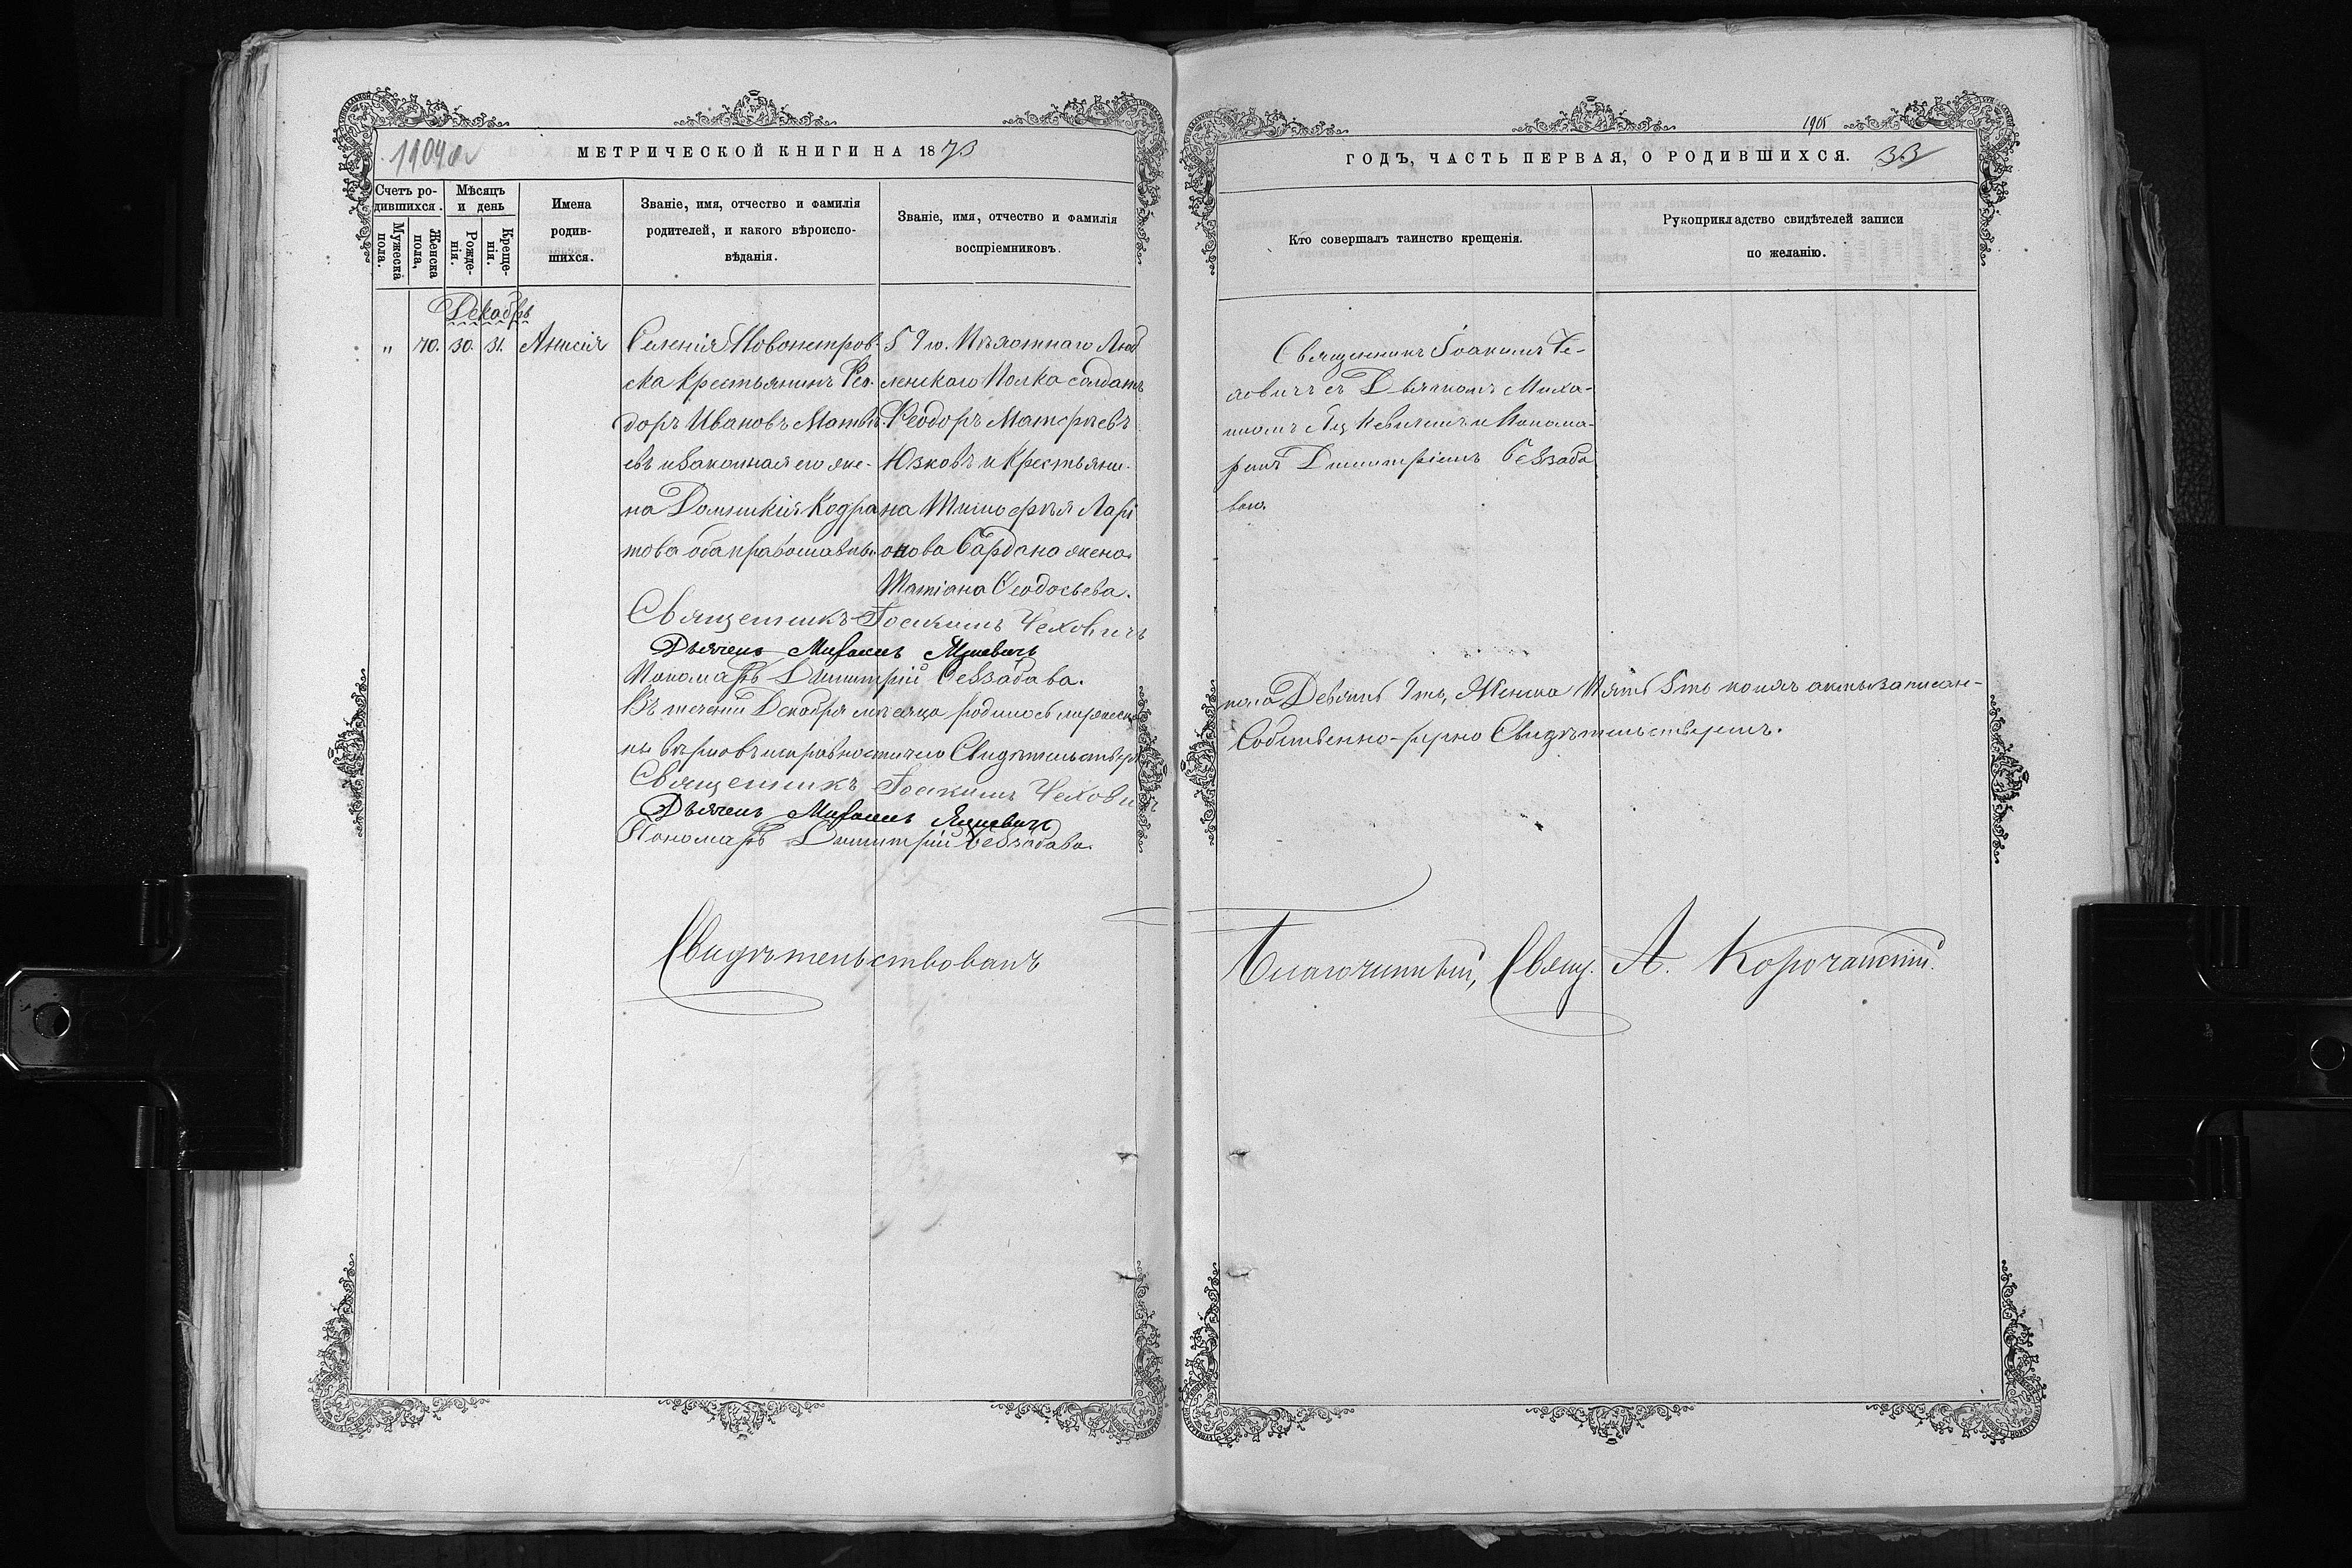 1904 об
МЕТРИЧЕСКОЙ КНИГИ НА 1873
Счетъ родившихся.
Мужеска пола.
Женска пола,
Мѣсяцъ и день
Рожденія.
Крещенія.
Имена родившихся.
Званіе, имя, отчество и фамилія родителей, и какого вѣроисповѣданія.
Званіе, имя, отчество и фамилія воспріемниковъ.
Декабрь
" 70. 30. 31. Анисія
Селенія Новопетров-
ска Крестьянинъ Ѳео-
доръ Ивановъ Матвѣ-
евъ и Законная его же-
на Домникія Кодра
това оба православн.
5 9го. Пѣхотнаго Люб
ленскаго Полка солдатъ
Ѳеодоръ Матфѣевъ
Юзковъ и Крестьяни-
на Тимофѣя Лари
онова Бардана жена
Татіана Ѳеодосьева.
Священникъ Іоакимъ Чеховичъ
Дьячекъ Михаилъ Яцкевичъ
Пономарь Димитрій Беззабава.
Въ теченіи Декабря мѣсяца родилось мужеска
ны вѣрно въ исправности чего Свидѣтельствуе
Священникъ Іоакимъ Чеховичъ
Дьячекъ Михаилъ Яцкевичъ
Пономарь Димитрій Беззабава.
Свидѣтельствовалъ
1905
ГОДЪ, ЧАСТЬ ПЕРВАЯ, О РОДИВШИХСЯ. 33
Кто совершалъ таинство крещенія.
Рукоприкладство свидѣтелей записи по желанію.
Священникъ Іоакимъ Че-
ховичъ съ Дьячкомъ Миха-
иломъ Яцкевичемъ и Понома-
ремъ Димитріемъ Беззаба
вою.
пола Девять 9ть, Женска Пять 5ть коихъ акты записан-
Собственно-ручно Свидѣтельствуемъ.
Благочинный, Свящ. А. Корочанскій.